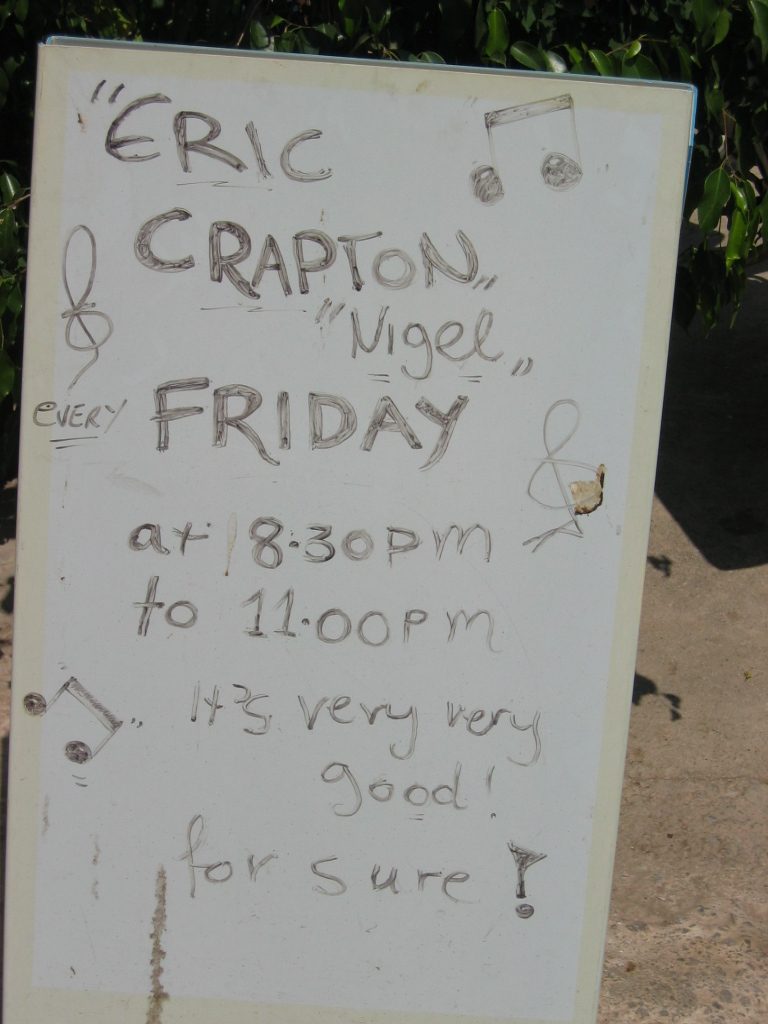 "ERIC
CRAPTON„
"Nigel„
EVERY FRIDAY
at 8.30pm
to 11.00pm
It's very very
good!
for sure!